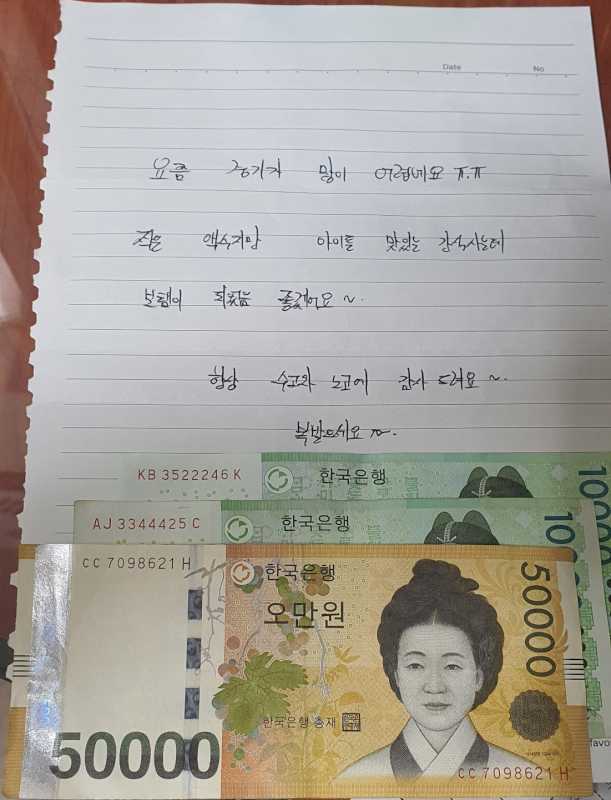 Date No
요즘 경기가 많이 어렵네요 ㅠ.ㅠ
적은 액수지만 아이들 맛있는 간식사는데
보탬이 되었음 좋겠어요 ~.
항상 수고와 노고에 감사 드려요 ~.
복받으시요 ~.
KB 3522246 K 한국은행 1000
AJ 3344425 C 한국은행 10
CC 7098621 H 한국은행 50000
오만원
한국은행 총재
50000 CC 7098621 H
favo